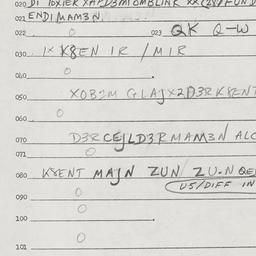 020 DI TOXIER XAPD3MIOMBLINK XX(28)FUND
021 ENDIMAM3N
022 O 023 QK Q-W
030 1X K8EN IR / MIR
040 O
050 XOB2M GLAJX2D3R K8ENT
060 O
070 D3RCEJLD3RMAM3N ALC
071 O
080 K8ENT MAJN ZUN ZU.N QE
US/DIFF IN
090 O
100 O
101 O